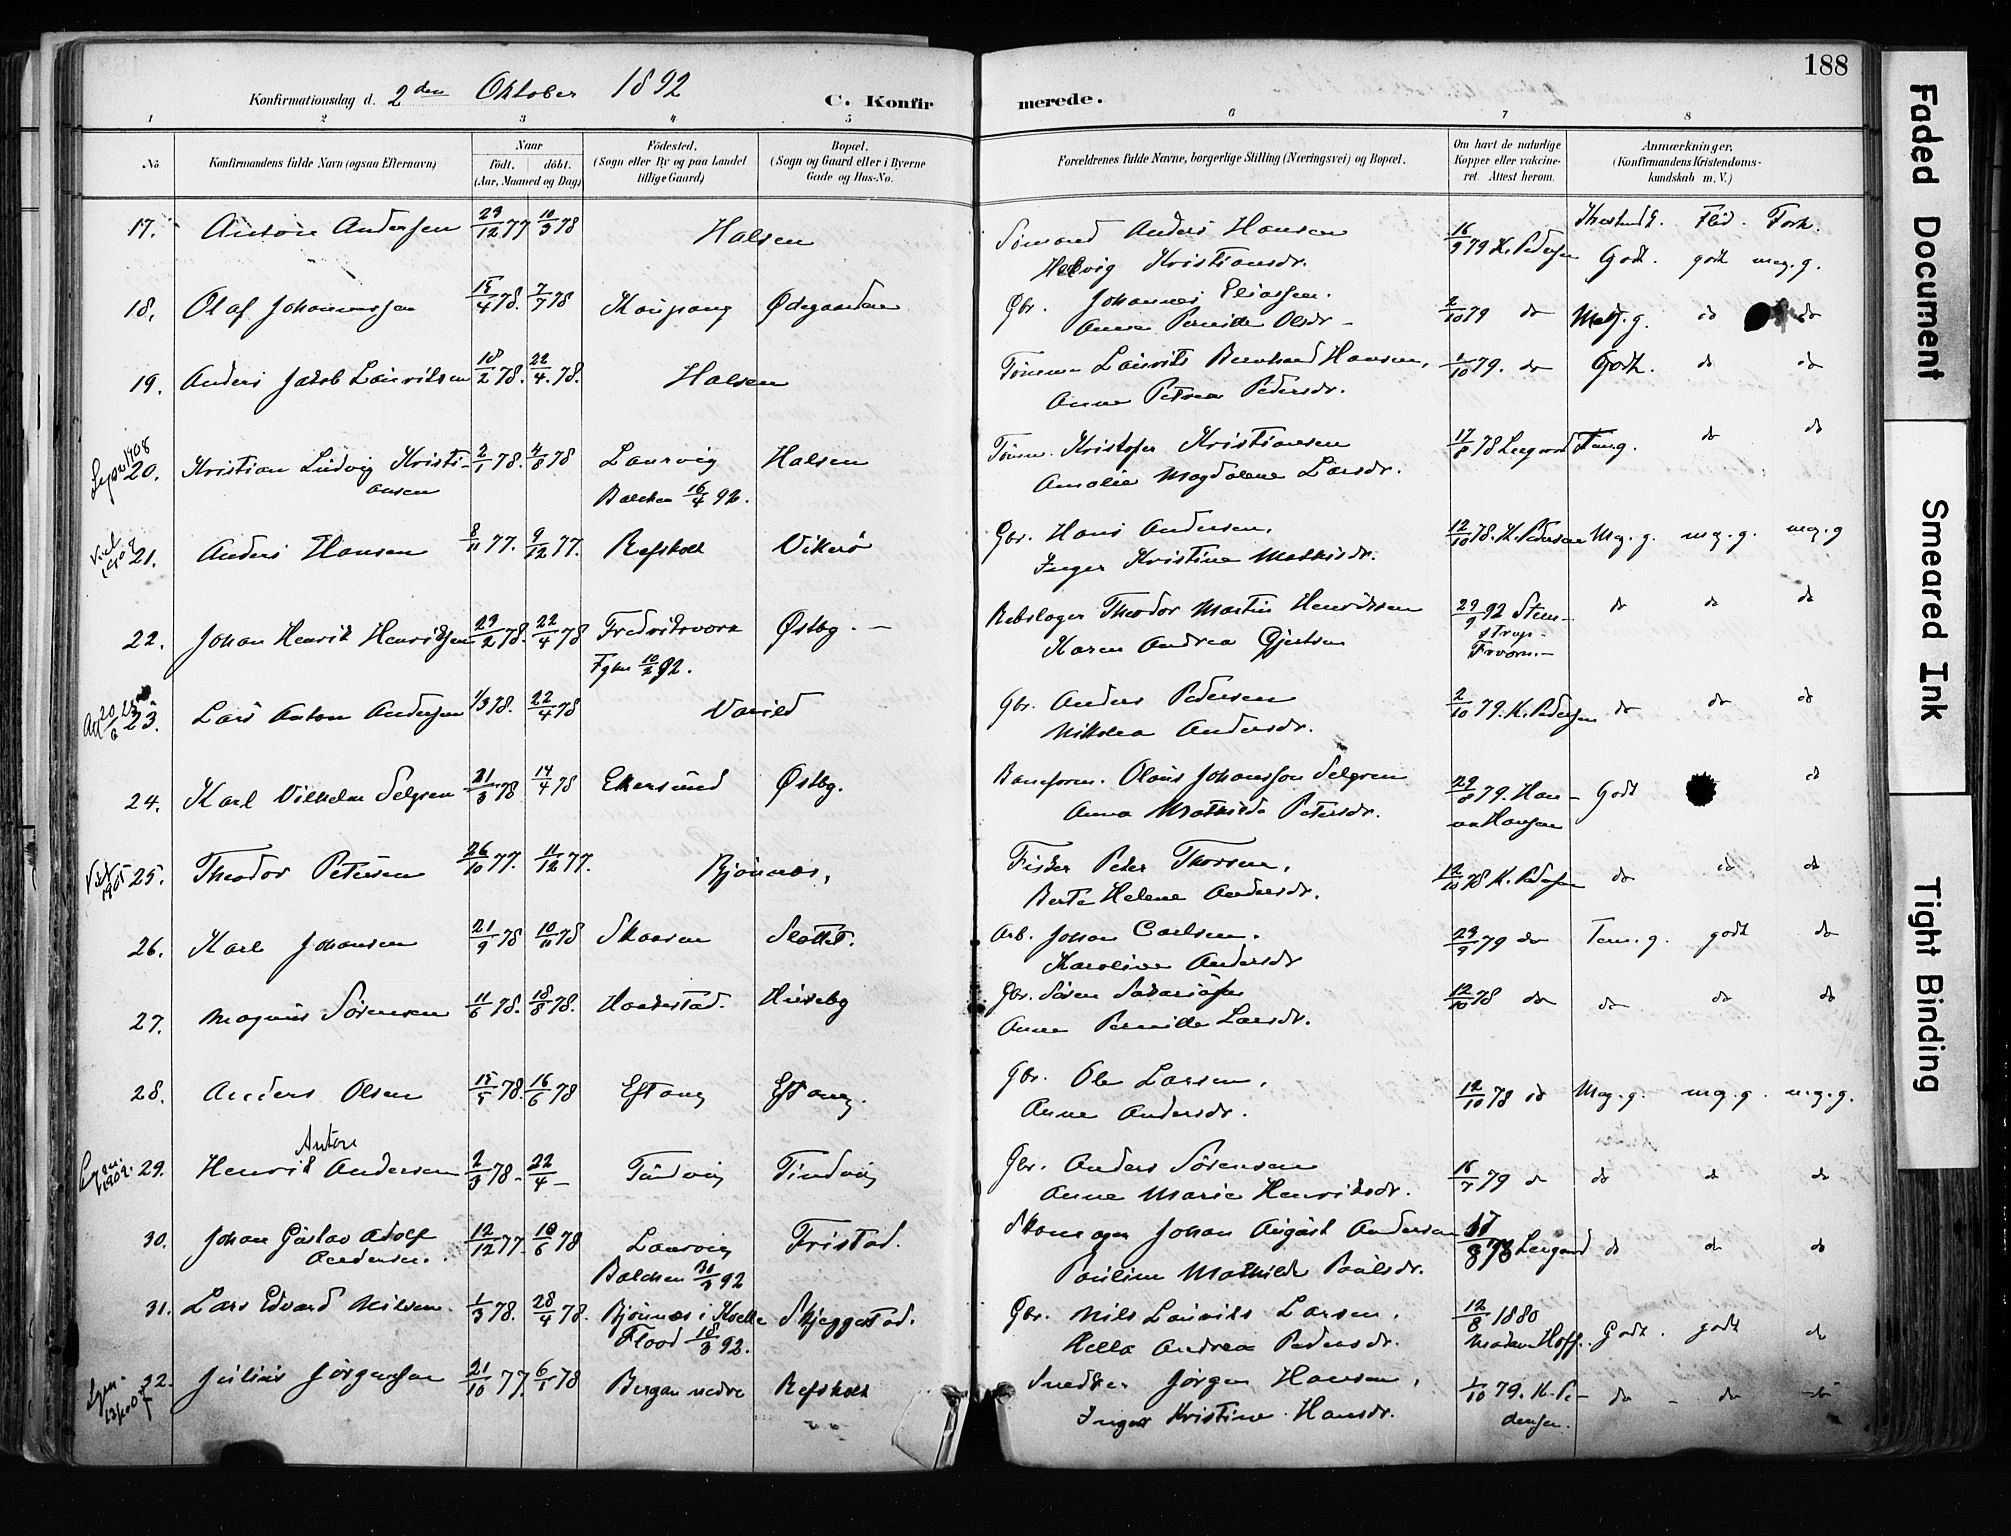 188
Konfirmationsdag d. 2den Oktober 1892
C. Konfirmerede.
1 2 3 4 5 6 7 8
No Konfirmandens fulde Navn (ogsaa Efternavn) Naar født. døbt. (Aar, Maaned og Dag) Födested. (Sogn eller By og paa Landet tillige Gaard) Bopæl. (Sogn og Gaard eller i Byerne Gade og Hus-No. Forældrenes fulde Navne, borgerlige Stilling (Næringsvei) og Bopæl. Om havt de naturlige Kopper eller vakcineret. Attest herom. Anmærkninger. (Konfirmandens Kristendomskundskab m. V.)
Flid. Forh.
17. Anton Andersen 29/12 77 10/3 78 Halsen Sömand Anders Hansen
Hedvig Kristiansdr. 16/9 79 K. Pedersen Godt. godt meg. g.
18. Olaf Johannessen 15/4 78. 7/7 78 Kaupang Ødegaarden Gbr. Johannes Eliassen.
Anne Pernille Olsdr 2/10 79 do Meg. g. do do
19. Anders Jakob Lauritsen 18/2 78. 22/4 78. Halsen Tömm. Laurits Bernhard Hansen,
Anne Petrea Pedersdr. 1/10 79. do Godt. do do
20. Kristian Ludvig Kristiansen 2/1 78. 4/8 78 Laurvig Halsen
Balchen 16/4 92. Tömm. Kristofer Kristiansen
Amalie Magdalene Larsdr. 17/8 78 do do
21. Anders Hansen 8/11 77. 9/12 77. Refsholt Vikerö Gbr. Hans Andersen,
Inger Kristine Mathisdr. 12/10 78. K. Pedersen Meg. g. meg. g. meg. g
22. Johan Henrik Henriksen 23/2 78. 22/4 78 Fredriksværn Østby.
10/2 92. Rebslager Theodor Martin Henriksen
Karen Andrea Gjertsen 29/9 92 do do do
23. Lars Anton Andersen 1/3 78. 22/4 78 Varild Gbr. Anders Pedersen
Nikolea Andersdr. 2/10 79. K. Pedersen do do do
24. Karl Vilhelm Selgren 21/3 78 14/4 78 Ekersund Østby. Baneform. Olaus Johansson Selgren
Anna Mathilde Petersdr. 29/8 79. Hanna Hansen Godt d
25. Theodor Petersen 26/10 77. 11/12 77. Bjönnes, Fisker Peter Thorsen,
Berte Helene Andersdr. 12/10 78 K. Pedersen do do do
26. Karl Johansen 21/9 78 10/11 78 Skaaren Slottet. Arb. Johan Carlsen.
Karoline Andersdr 29/9 79 do Tem. g. godt do
27. Magnus Sörensen 11/6 78. 18/8 78. Haakestad. Huseby Gbr. Sören
Anne Pernille Larsdr. 12/10 78 do do do do
28. Anders Olsen 15/5 78. 16/6 78 Eftang Eftang. Gbr. Ole Larsen,
Anne Andersdr. 12/10 78 do Meg. g. meg. g. m. g. g.
29. Henrik Anton Andersen 2/3 78 22/4 – Tindvig Tindvig Gbr. Anders Sörensen
Anne Marie Henriksdr. 16/7 79 do do do do
30. Johan Gustav Adolf Andersen. 12/12 77. 10/6 78 Laurvig Fristad.
Balchen 31/3 92 Skomager Johan August Andersen
Pauline Mathilde Paulsdr. 17/8 78 do do do
31. Lars Edvard Nilsen. 1/3 78. 28/4 78. Bjönnes i Skjeggestad.
Flood 18/3 92. Gbr. Nils Laurits Larsen,
Andrea Pedersdr. 12/8 1880 Madam Hoff. Godt. godt do
32. Julius Jörgensen 21/10 77. 6/1 78 Bergan nedre Refsholt Snedker Jörgen Hansen,
Inger Kristine Hansdr. 1/10 79. K. Pedersen. do do do
Faded Document
Smeared Ink
Tight Binding